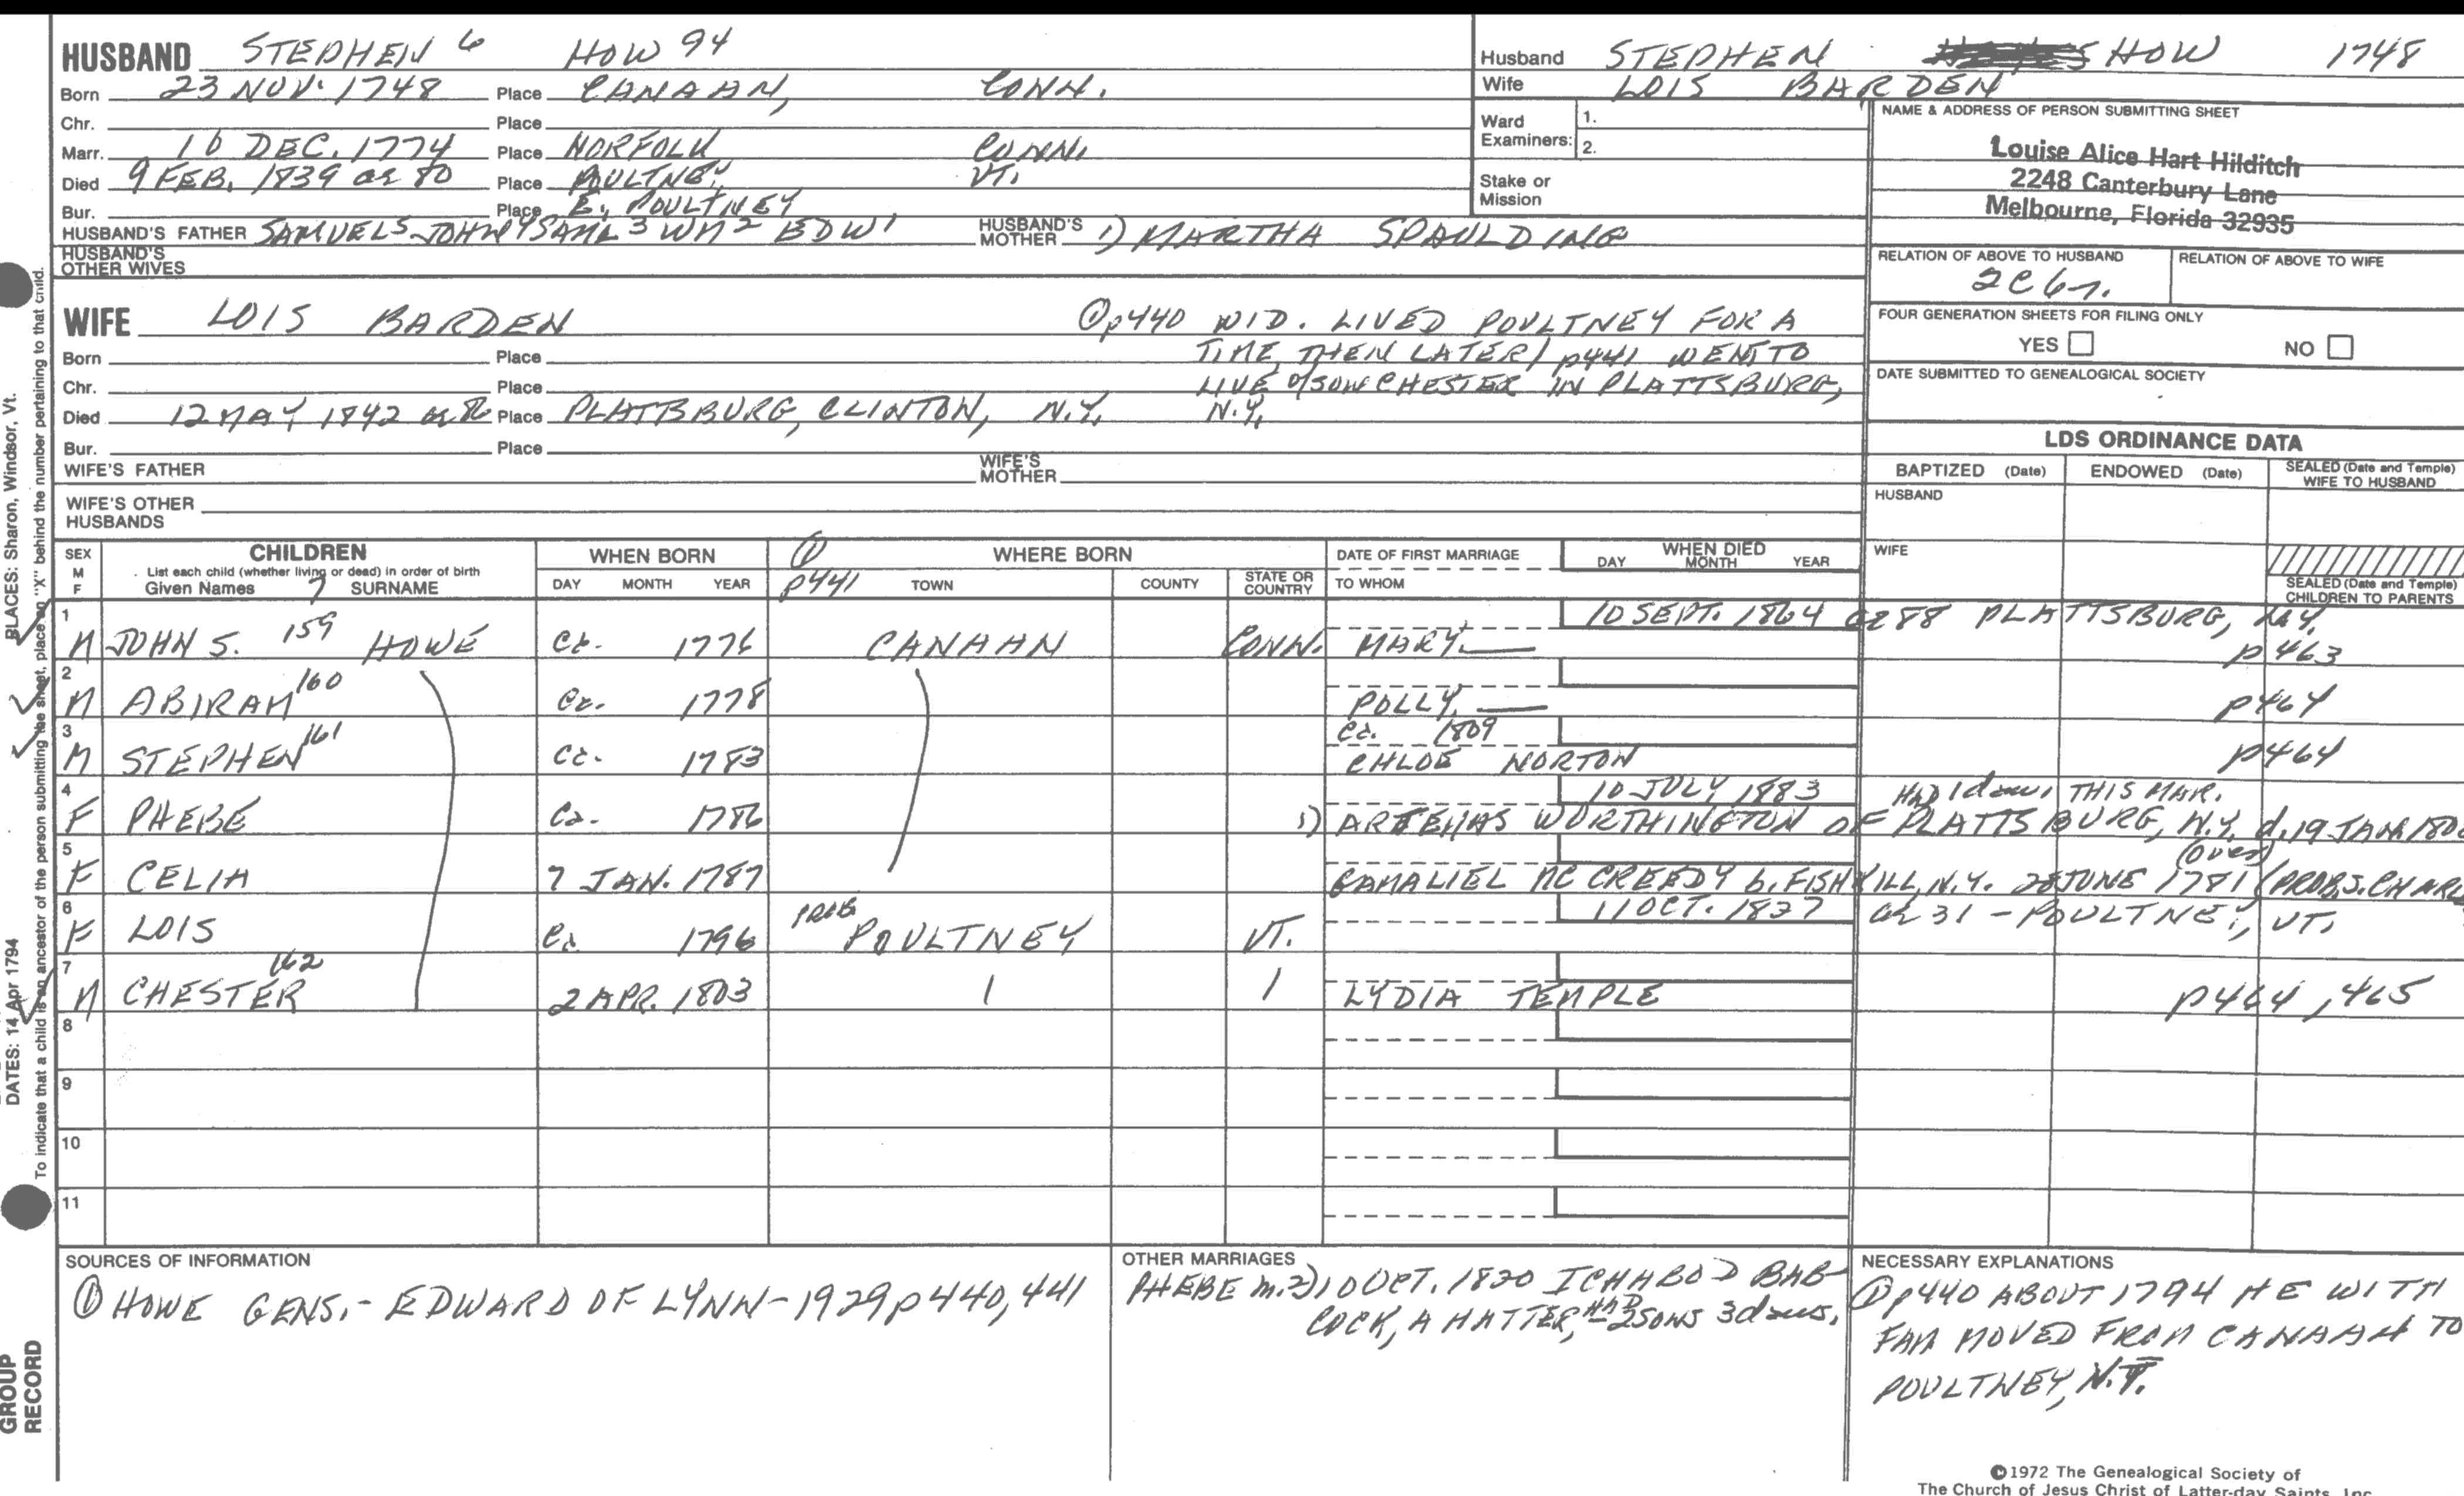 HUSBAND STEPHEN 6 HOW 94
Born 23 NOV. 1748 Place CANAAN, CONN.
Chr. Place
Marr. 16 DEC. 1774 Place NORFOLK CONN.
Died 9 FEB. 1839 ae 80 Place POULTNEY, VT.
Bur. Place E. POULTNEY
HUSBAND'S FATHER SAMUEL5 JOHN4 SAML3 WM2 EDW1 HUSBAND'S MOTHER 1) MARTHA SPAULDING
HUSBAND'S OTHER WIVES
Husband STEPHEN HOW 1748
Wife LOIS BARDEN
Ward Examiners: 1.
2.
Stake or Mission
NAME & ADDRESS OF PERSON SUBMITTING SHEET
Louise Alice Hart Hilditch
2248 Canterbury Lane
Melbourne, Florida 32935
RELATION OF ABOVE TO HUSBAND RELATION OF ABOVE TO WIFE
2C6r.
FOUR GENERATION SHEETS FOR FILING ONLY
YES NO
DATE SUBMITTED TO GENEALOGICAL SOCIETY
WIFE LOIS BARDEN
Born Place
Chr. Place
Died 12 MAY 1842 Place PLATTSBURG, CLINTON, N.Y.
Bur. Place
WIFE'S FATHER WIFE'S MOTHER
WIFE'S OTHER HUSBANDS
① p440 WID. LIVED POULTNEY FOR A
TIME, THEN LATER / p441 WENT TO
LIVE w/SON CHESTER IN PLATTSBURG,
N.Y.
LDS ORDINANCE DATA
BAPTIZED (Date) ENDOWED (Date) SEALED (Date and Temple) WIFE TO HUSBAND
HUSBAND
WIFE
SEALED (Date and Temple) CHILDREN TO PARENTS
SEX M F
CHILDREN
List each child (whether living or dead) in order of birth
Given Names 7 SURNAME
WHEN BORN
DAY MONTH YEAR
① p441
WHERE BORN
TOWN COUNTY STATE OR COUNTRY
DATE OF FIRST MARRIAGE
TO WHOM
WHEN DIED
DAY MONTH YEAR
10 SEPT. 1864 ae 88 PLATTSBURG, N.Y.
1 M JOHN S. 159 HOWE Ca. 1776 CANAAN CONN. MARY — p463
2 M ABIRAM 160 Ca. 1778 POLLY — p464
ca. 1809
3 M STEPHEN 161 Ca. 1783 CHLOE NORTON p464
10 JULY 1883 HAD 1 dau. THIS MAR.
4 F PHEBE Ca. 1786 1) ARTEMAS WORTHINGTON OF PLATTSBURG, N.Y. d. 19 JAN.
(over)
5 F CELIA 7 JAN. 1787 GAMALIEL MC CREEDY b. FISHKILL, N.Y. 28 JUNE 1781 (PROB. S.
11 OCT. 1837 ae 31 - POULTNEY, VT.
6 F LOIS Ca. 1796 PROB POULTNEY VT.
7 M CHESTER 162 2 APR. 1803 LYDIA TEMPLE p464, 465
8
9
10
11
SOURCES OF INFORMATION
① HOWE GENS. - EDWARD OF LYNN - 1929 p440, 441
OTHER MARRIAGES
PHEBE m. 2) 10 OCT. 1820 ICHABOD BAB-
COCK, A HATTER, HAD 2 SONS 3 daus.
NECESSARY EXPLANATIONS
① p440 ABOUT 1794 HE WITH
FAM MOVED FROM CANAAN TO
POULTNEY,
©1972 The Genealogical Society of
The Church of Jesus Christ of Latter-day Saints, Inc.
PLACES: Sharon, Windsor, Vt.
DATES: 14 Apr 1794
To indicate that a child is an ancestor of the person submitting the sheet, place an "X" behind the number pertaining to that child.
GROUP
RECORD